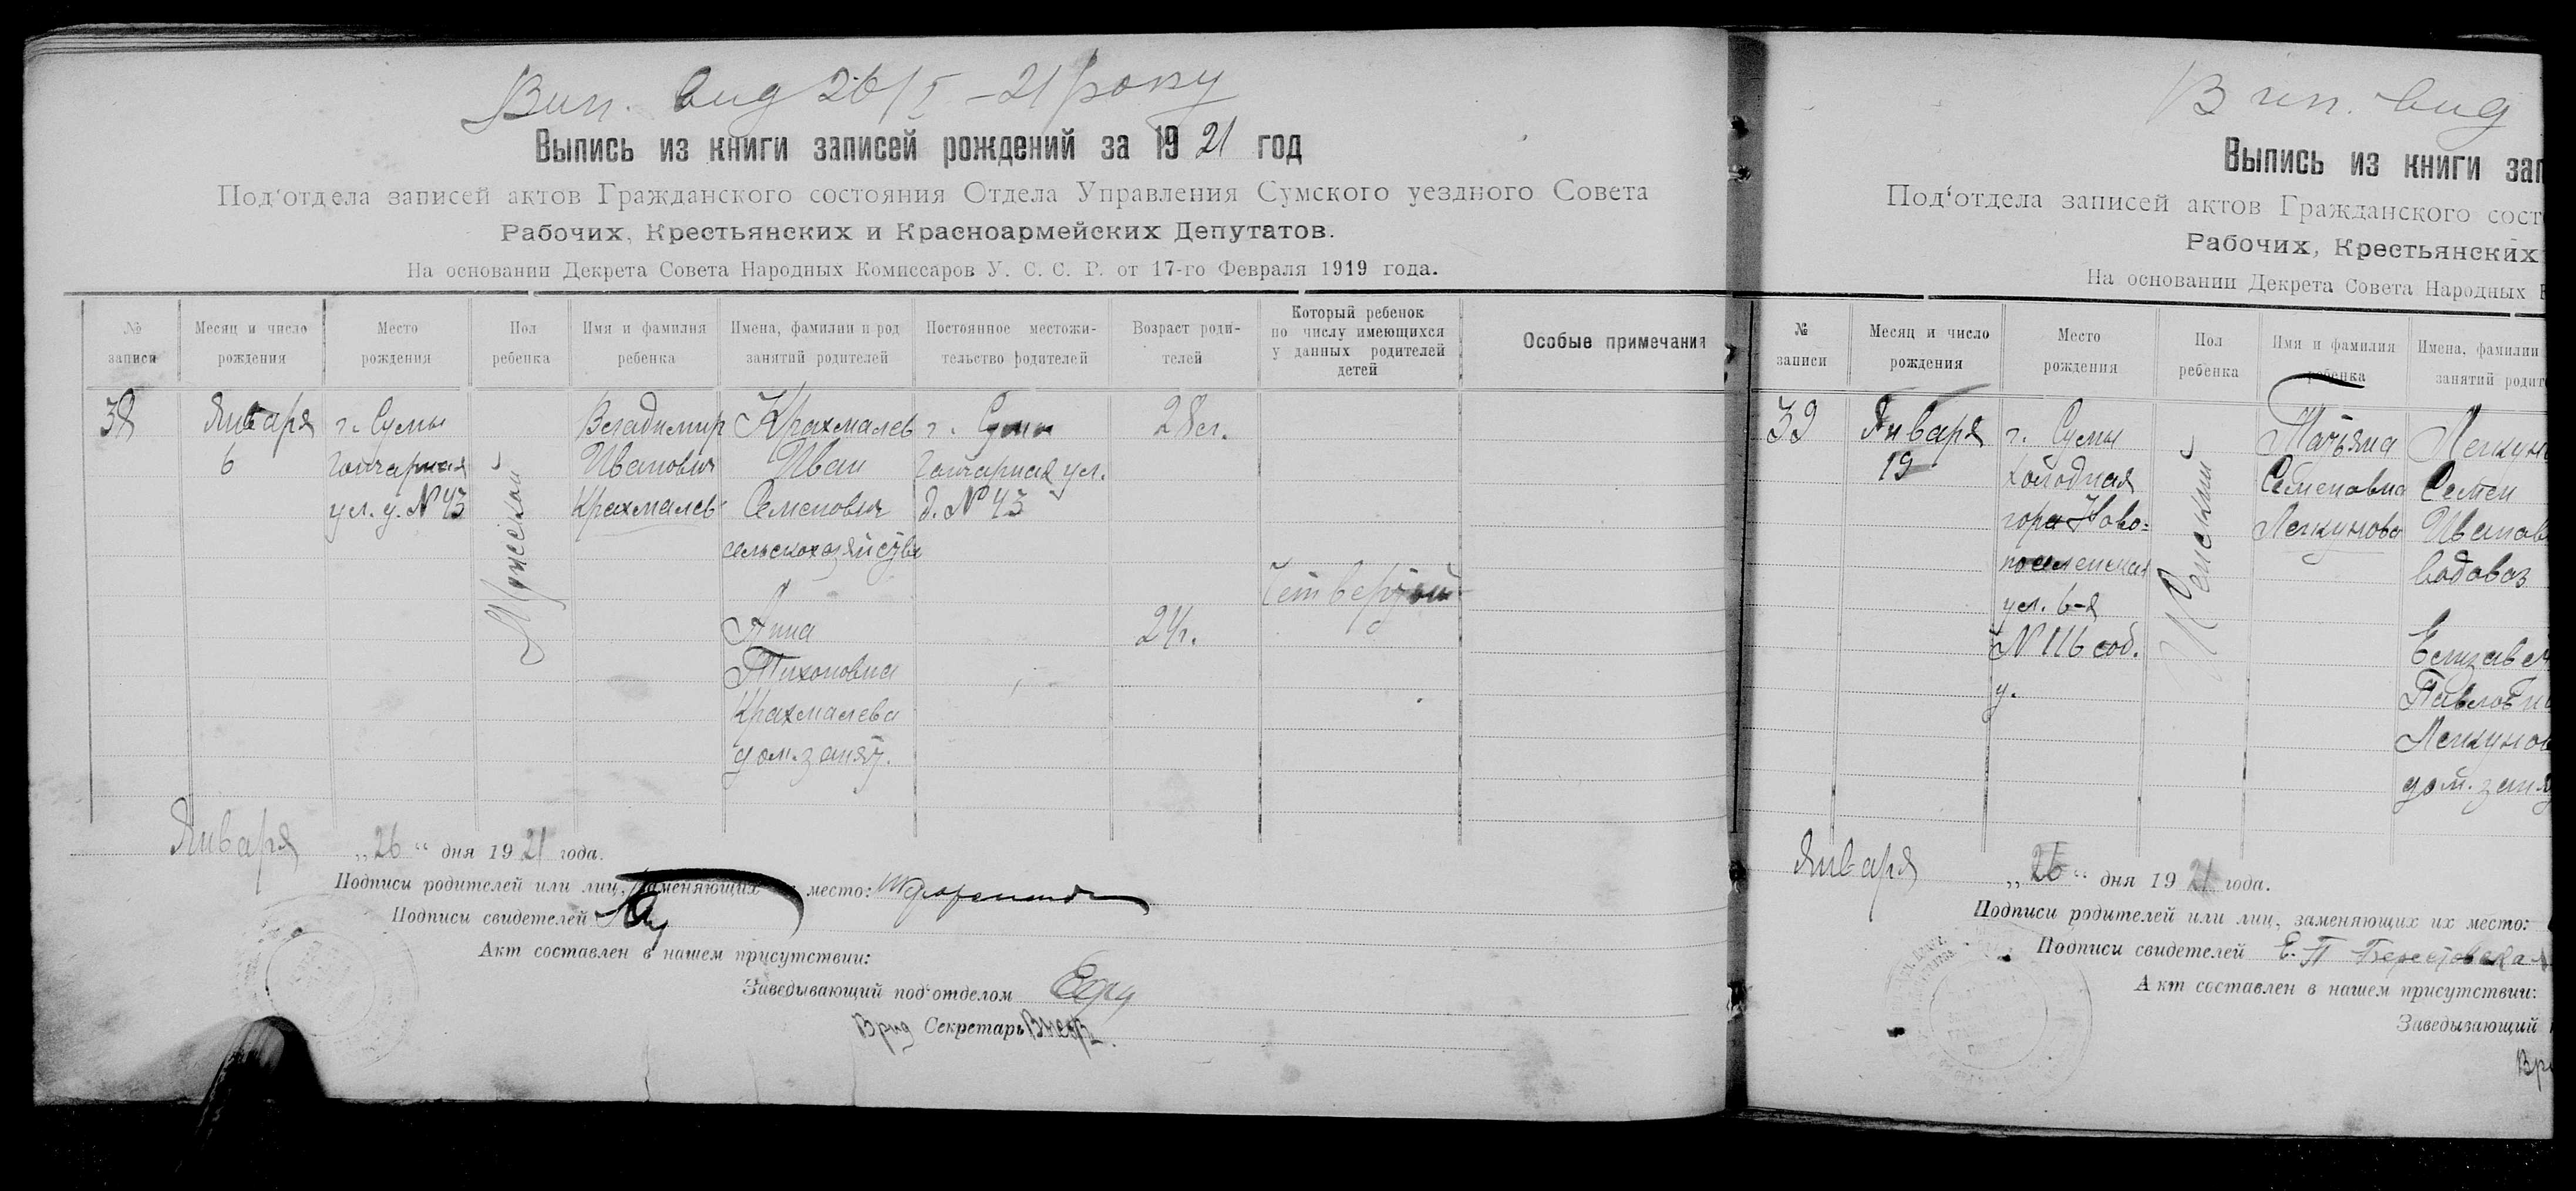 Вип. вид 26/I - 21 року
Выпись из книги записей рождений за 1921 год
Под'отдела записей актов Гражданского состояния Отдела Управления Сумского уездного Совета
Рабочих, Крестьянских и Красноармейских Депутатов.
На основании Декрета Совета Народных Комиссаров У. С. С. Р. от 17-го Февраля 1919 года.
№ записи
Месяц и число рождения
Место рождения
Пол ребенка
Имя и фамилия ребенка
Имена, фамилии и род занятий родителей
Постоянное местожительство родителей
Возраст родителей
Который ребенок по числу имеющихся у данных родителей детей
Особые примечания
38
Января
6
г. Сумы
Гончарная
ул. д. № 43
Мужеской
Владимир
Иванович
Крахмалев
Крахмалев
Иван
Семенович
сельскохозяйство
Анна
Тихоновна
Крахмалева
дом. занят.
г. Сумы
Гончарная ул.
д. № 43
28 л.
24 г.
Четвертый
Января „26“ дня 1921 года.
Подписи родителей или лиц, заменяющих место:
Подписи свидетелей
Акт составлен в нашем присутствии:
Заведывающий под'отделом
Врид Секретарь
Вип. вид
Выпись из книги зап
Под'отдела записей актов Гражданского сост
Рабочих, Крестьянских
На основании Декрета Совета Народных
№ записи
Месяц и число рождения
Место рождения
Пол ребенка
Имя и фамилия ребенка
Имена, фамилии
занятий родит
39
Января
19
г. Сумы
Холодная
гора Ново-
поселенская
ул. 6-я
№ 116 соб.
д.
Женский
Татьяна
Семеновна
Семен
Иванов
водовоз
Елизавет
Павловн
дом. заня
Января „26“ дня 1921 года.
Подписи родителей или лиц, заменяющих их место:
Подписи свидетелей Е. П. Берестовска
Акт составлен в нашем присутствии:
Заведывающий
Вр